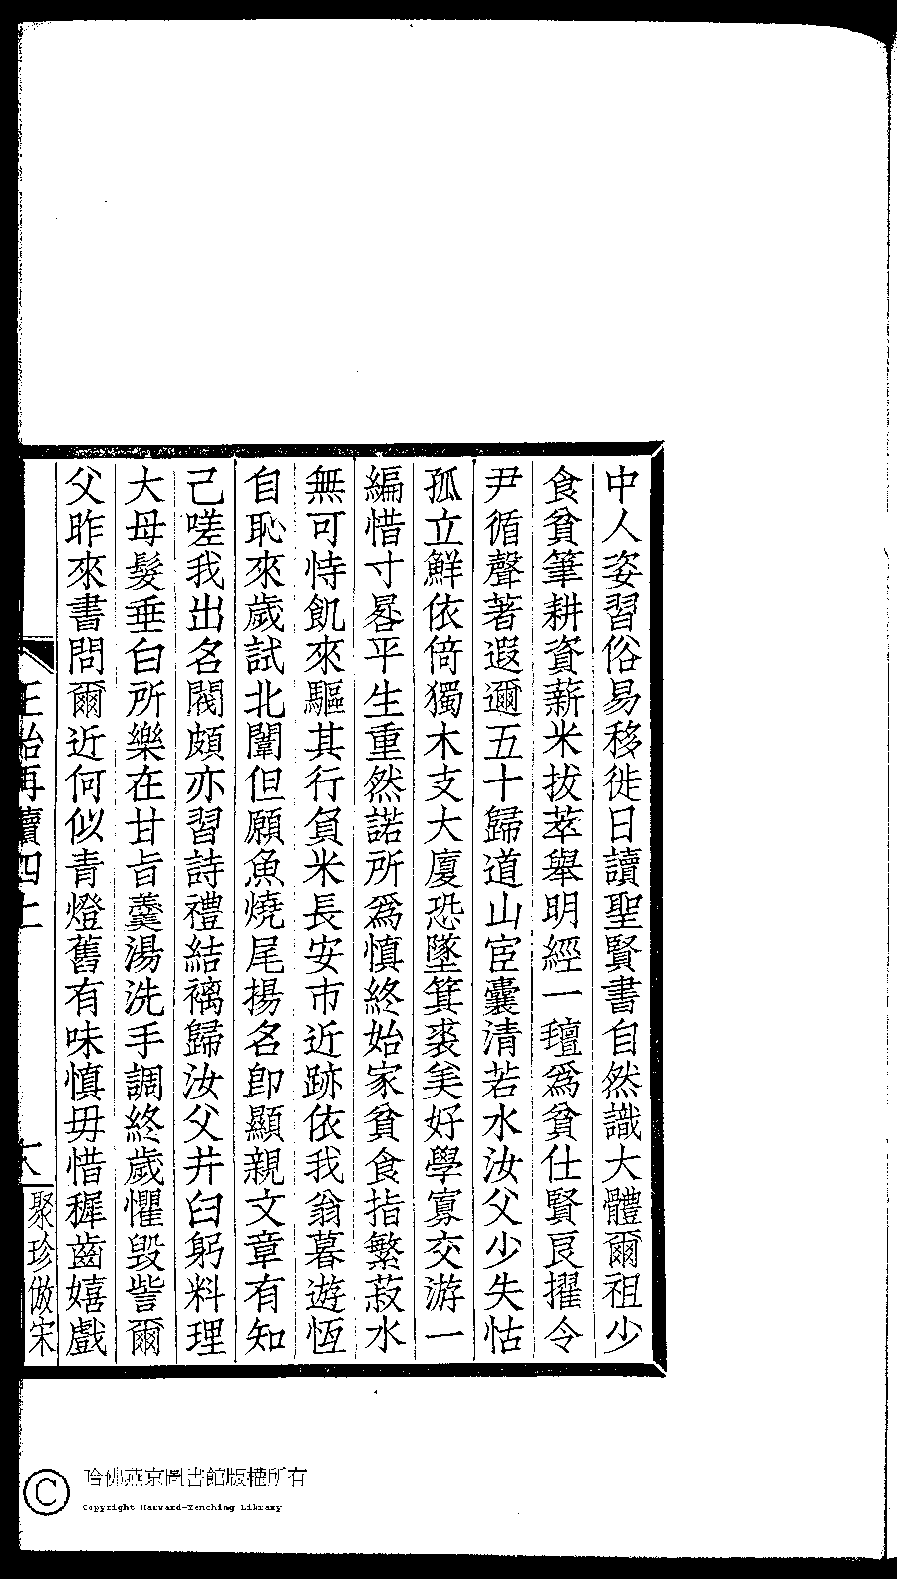 中人姿習俗易移徙日讀聖賢書自然識大體爾祖少
食貧筆耕資薪米拔萃舉明經一氈爲貧仕賢良擢令
尹循聲著遐邇五十歸道山宦囊清若水汝父少失怙
孤立鮮依倚獨木支大廈恐墜箕裘矣好學寡交游一
編惜寸晷平生重然諾所爲慎終始家貧食指繁菽水
無可恃飢來驅其行負米長安市近跡依我翁暮遊恆
自恥來歲試北闈但願魚燒尾揚名卽顯親文章有知
己嗟我出名閥頗亦習詩禮結褵歸汝父井臼躬料理
大母髮垂白所樂在甘旨羹湯洗手調終歲懼毀訾爾
父昨來書問爾近何似青燈舊有味慎毋惜穉齒嬉戲
再續四上
聚珍倣宋
哈佛燕京圖書館版權所有
Copyright Harvard-Yenching Library